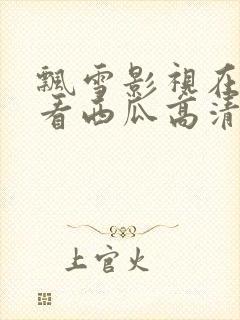 飄雪影視在
看西瓜高清
上官火